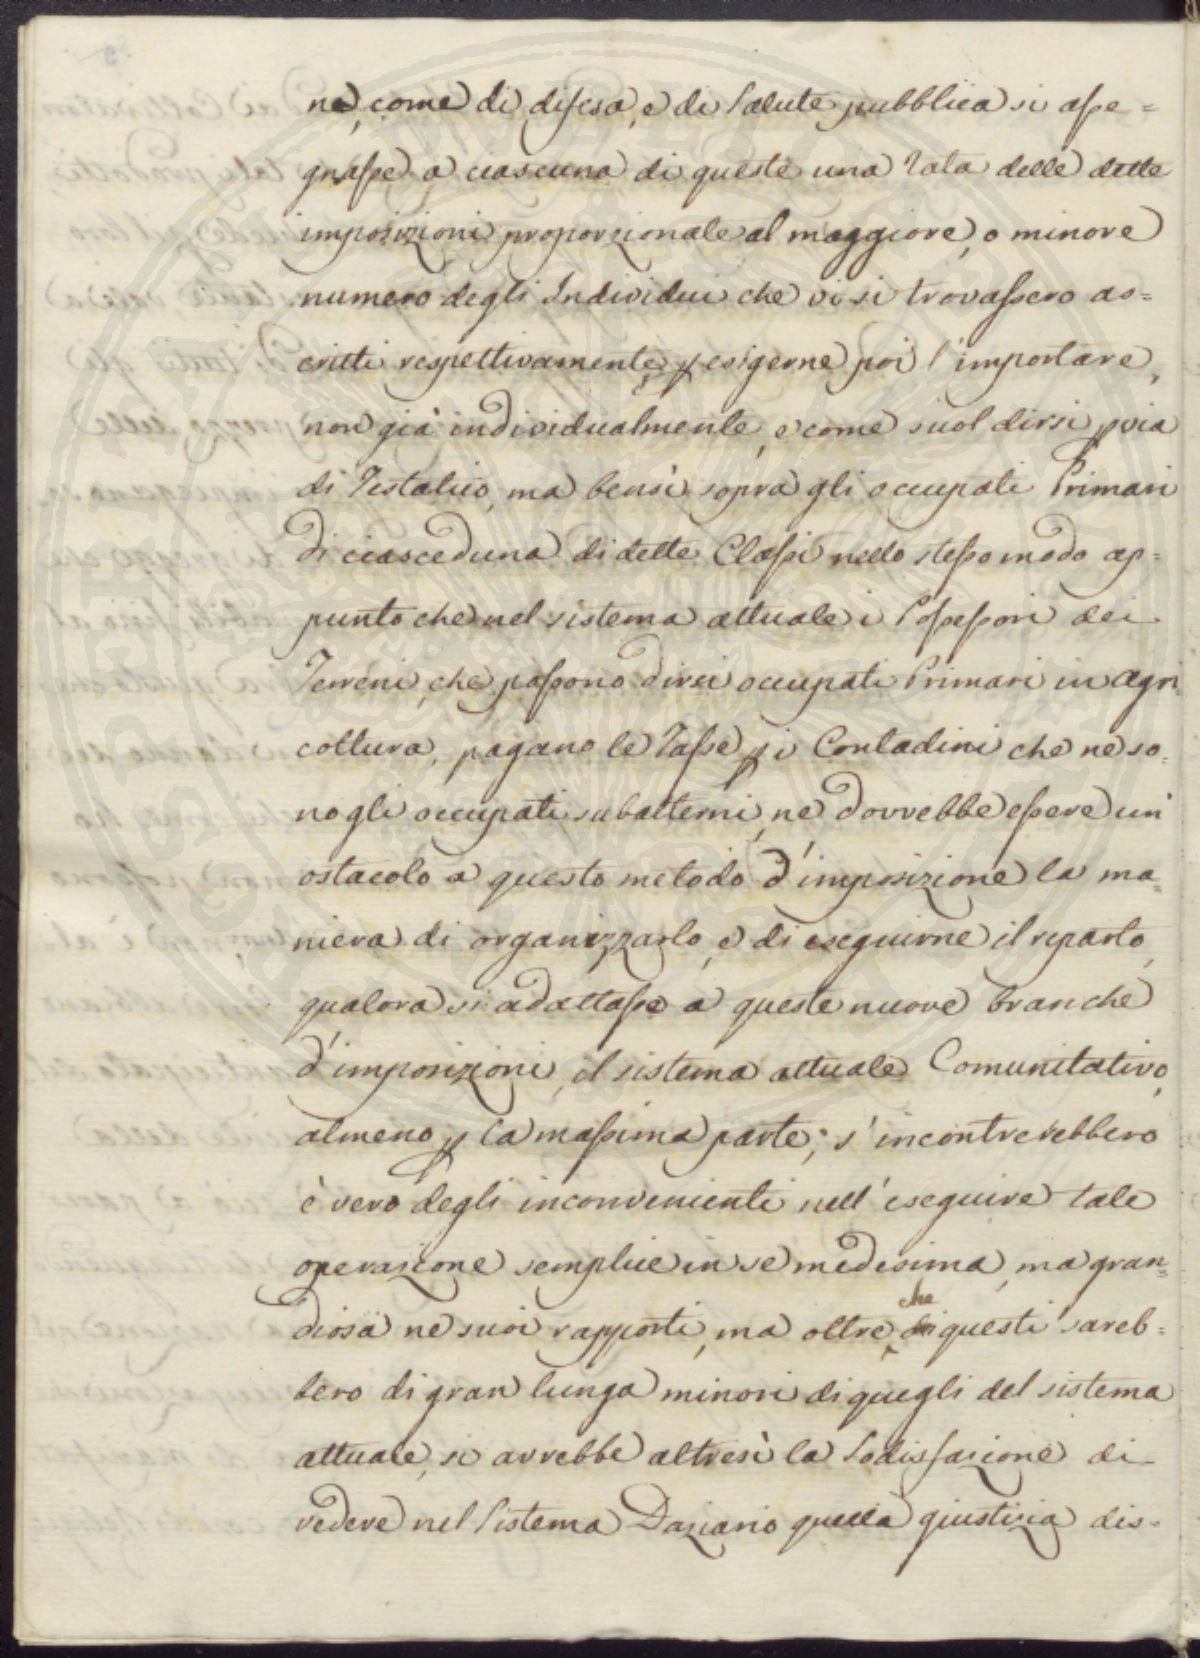 ne, come di difesa, e di Salute pubblica si asse=
gnasse a ciascuna di queste una rata delle dette
imposizioni proporzionale al maggiore, o minore
numero degli Individui che vi si trovassero as=
critti respettivamente, p esigerne poi l'importare,
non già individualmente, e come suol dirsi p via
di Testatico, ma bensì sopra gli occupati Primari
di ciascheduna di dette Classi nello stesso modo ap=
punto che nel sistema attuale i Possessori dei
Terreni, che possono dirsi occupati Primari in agri
coltura, pagano le Tasse p i Contadini che ne so=
no gli occupati subalterni, ne dovrebbe essere un'
ostacolo a questo metodo d'imposizione la ma=
niera di organizzarlo, e di eseguirne il reparto,
qualora si adattasse a queste nuove branche
d'imposizioni, il sistema attuale Comunitativo,
almeno p la massima parte; s'incontrerebbero
è vero degli inconvenienti nell'eseguire tale
operazione semplice in se medesima, ma gran=
diosa ne suoi rapporti, ma oltre che questi sareb=
bero di gran lunga minori di quegli del sistema
attuale, si avrebbe altresì la Sodisfazione di
vedere nel Sistema Daziario quella giustizia dis=